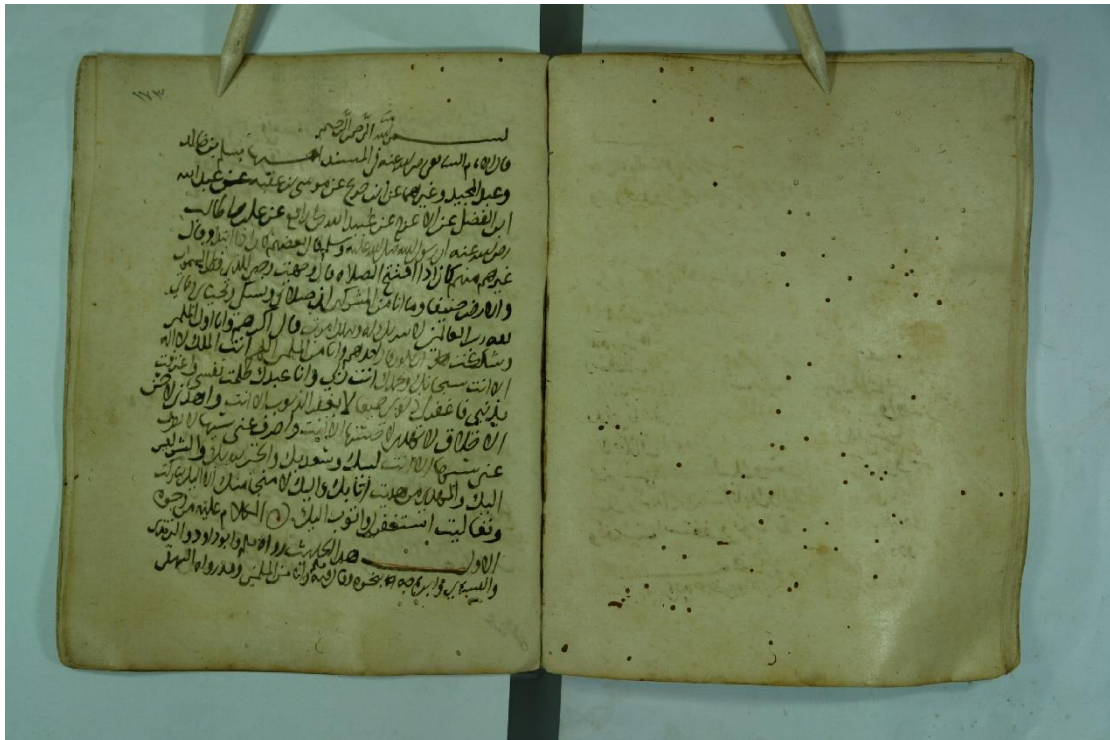 ١٧٣
بسم الله الرحمن الرحيم
قال الامام الشافعي رضي الله عنه في المسند مسلم بن خالد
وعبد المجيد وغيرهما عن ابن جريج عن موسى بن عقبة عن عبد الله
ابن الفضل عن الاعرج عن عبيد الله بن ابي رافع عن علي بن ابي طالب
رضي الله عنه ان رسول الله صلى الله عليه وسلم قال بعضهم كان اذا ابتدا وقال
غيرهم منهم كان اذا افتتح الصلاة قال وجهت وجهي للذي فطر السموات
والارض حنيفا وما انا من المشركين ان صلاتي ونسكي ومحياي ومماتي
لله رب العالمين لا شريك له وبذلك امرت قال اكثرهم وانا اول المسلمين
وشككت احدهم وانا من المسلمين اللهم انت الملك لا اله
الا انت سبحانك وبحمدك انت ربي وانا عبدك ظلمت نفسي واعترفت
بذنبي فاغفر لي ذنوبي جميعا لا يغفر الذنوب الا انت واهدني لاحسن
الاخلاق لا يهدي لاحسنها الا انت واصرف عني سيئها لا يصرف
عني سيئها الا انت لبيك وسعديك والخير بيديك والشر ليس
اليك والمهدي من هديت انا بك واليك لا منجى منك الا اليك تباركت
وتعاليت استغفرك واتوب اليك الكلام عليه من وجوه
الاول هذا الحديث رواه مسلم وابو داود والترمذي
والنسائي وابن ماجه بنحوه وانا من المسلمين وقد رواه البيهقي